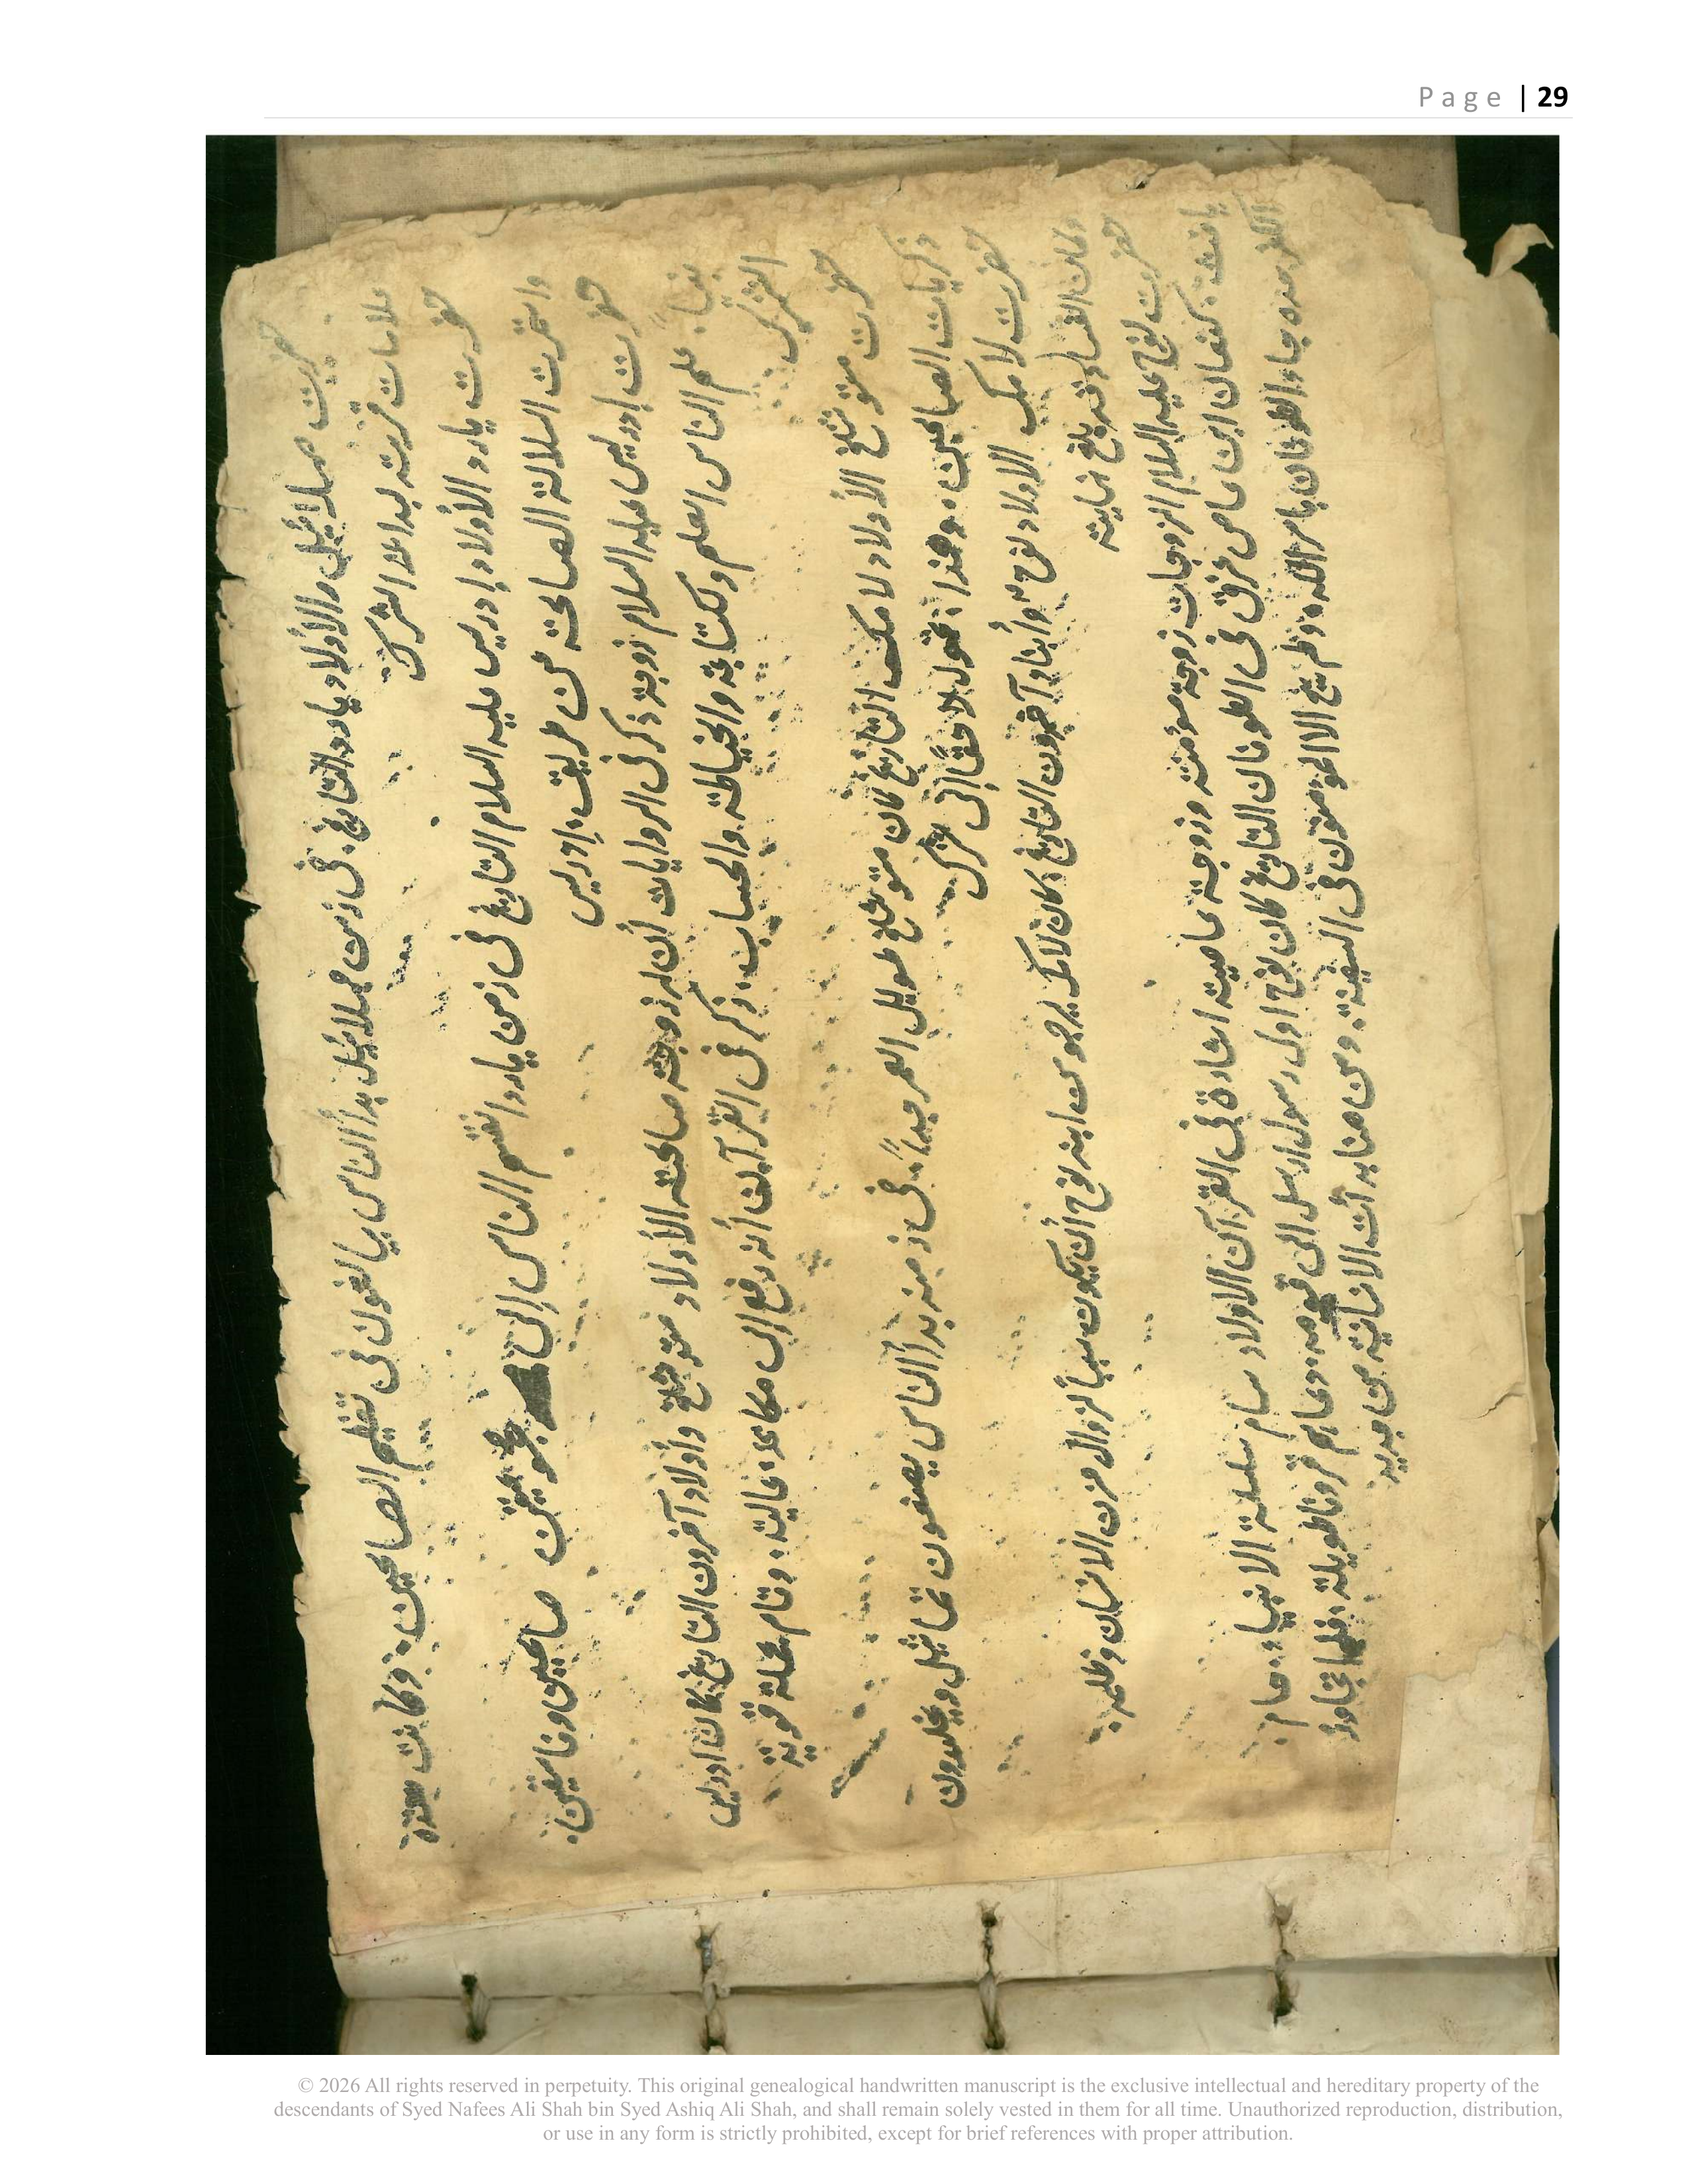 Page | 29
حضرت مهلائيل والأولاد يارد التاريخ: في زمن مهلائيل بدأ الناس يبالغون في تعظيم الصالحين: وكانت هذه
علامات قريبة لبداية الشرك
حضرت يارد الأولاد إدريس عليه السلام التاريخ في زمن يارد انقسم الناس إلى مجموعتين صالحين وفاسقين:
واستمرت السلالة الصالحة عن طريق: إدريس
حضرت إدريس عليه السلام زوجة ذكر في الروايات أن له زوجة صالحة الأولاد متوشلخ وأولاد آخرون التاريخ كان ادريس
نبياً. علم الناس العلم ولكتابة والخياطة والحساب: ذكر في القرآن أنه رفع إلى مكانة عالية: وقام بحملة قوية
الشرك
حضرت متوشلخ الأولاد لامك التاريخ كان متوشلخ طويل العمر جداً: في زمنه بدأ الناس يصنعون تماثيل ويخلدون
ذكريات الصالحين، وهذا تحول لاحقاً إلى شرك
حضرت لامك الاولاد نوح وأبناء آخرون التاريخ كان لامك يرجو من ابنه نوح أن يكون سبباً لزوال حزن الانسان وظلمه.
وكان الفساد قد بلغ نهايته
حضرت نوح عليه السلام الزوجات زوجة مؤمنة وزوجة عاصية اشارة في القرآن الاولاد سام سلسلة الانبياء: حام:
يافث: كنعان ابن عاص غرق في الطوفان التاريخ كان نوح اول رسول ارسل الى قومه. دعاهم قرونا طويلة: فلما تجاوز
الكفر حده جاء الطوفان بامر الله، ولم ينج الا المؤمنون في السفينة. ومن هنا بدأت الانسانية من جديد
© 2026 All rights reserved in perpetuity. This original genealogical handwritten manuscript is the exclusive intellectual and hereditary property of the
descendants of Syed Nafees Ali Shah bin Syed Ashiq Ali Shah, and shall remain solely vested in them for all time. Unauthorized reproduction, distribution,
or use in any form is strictly prohibited, except for brief references with proper attribution.